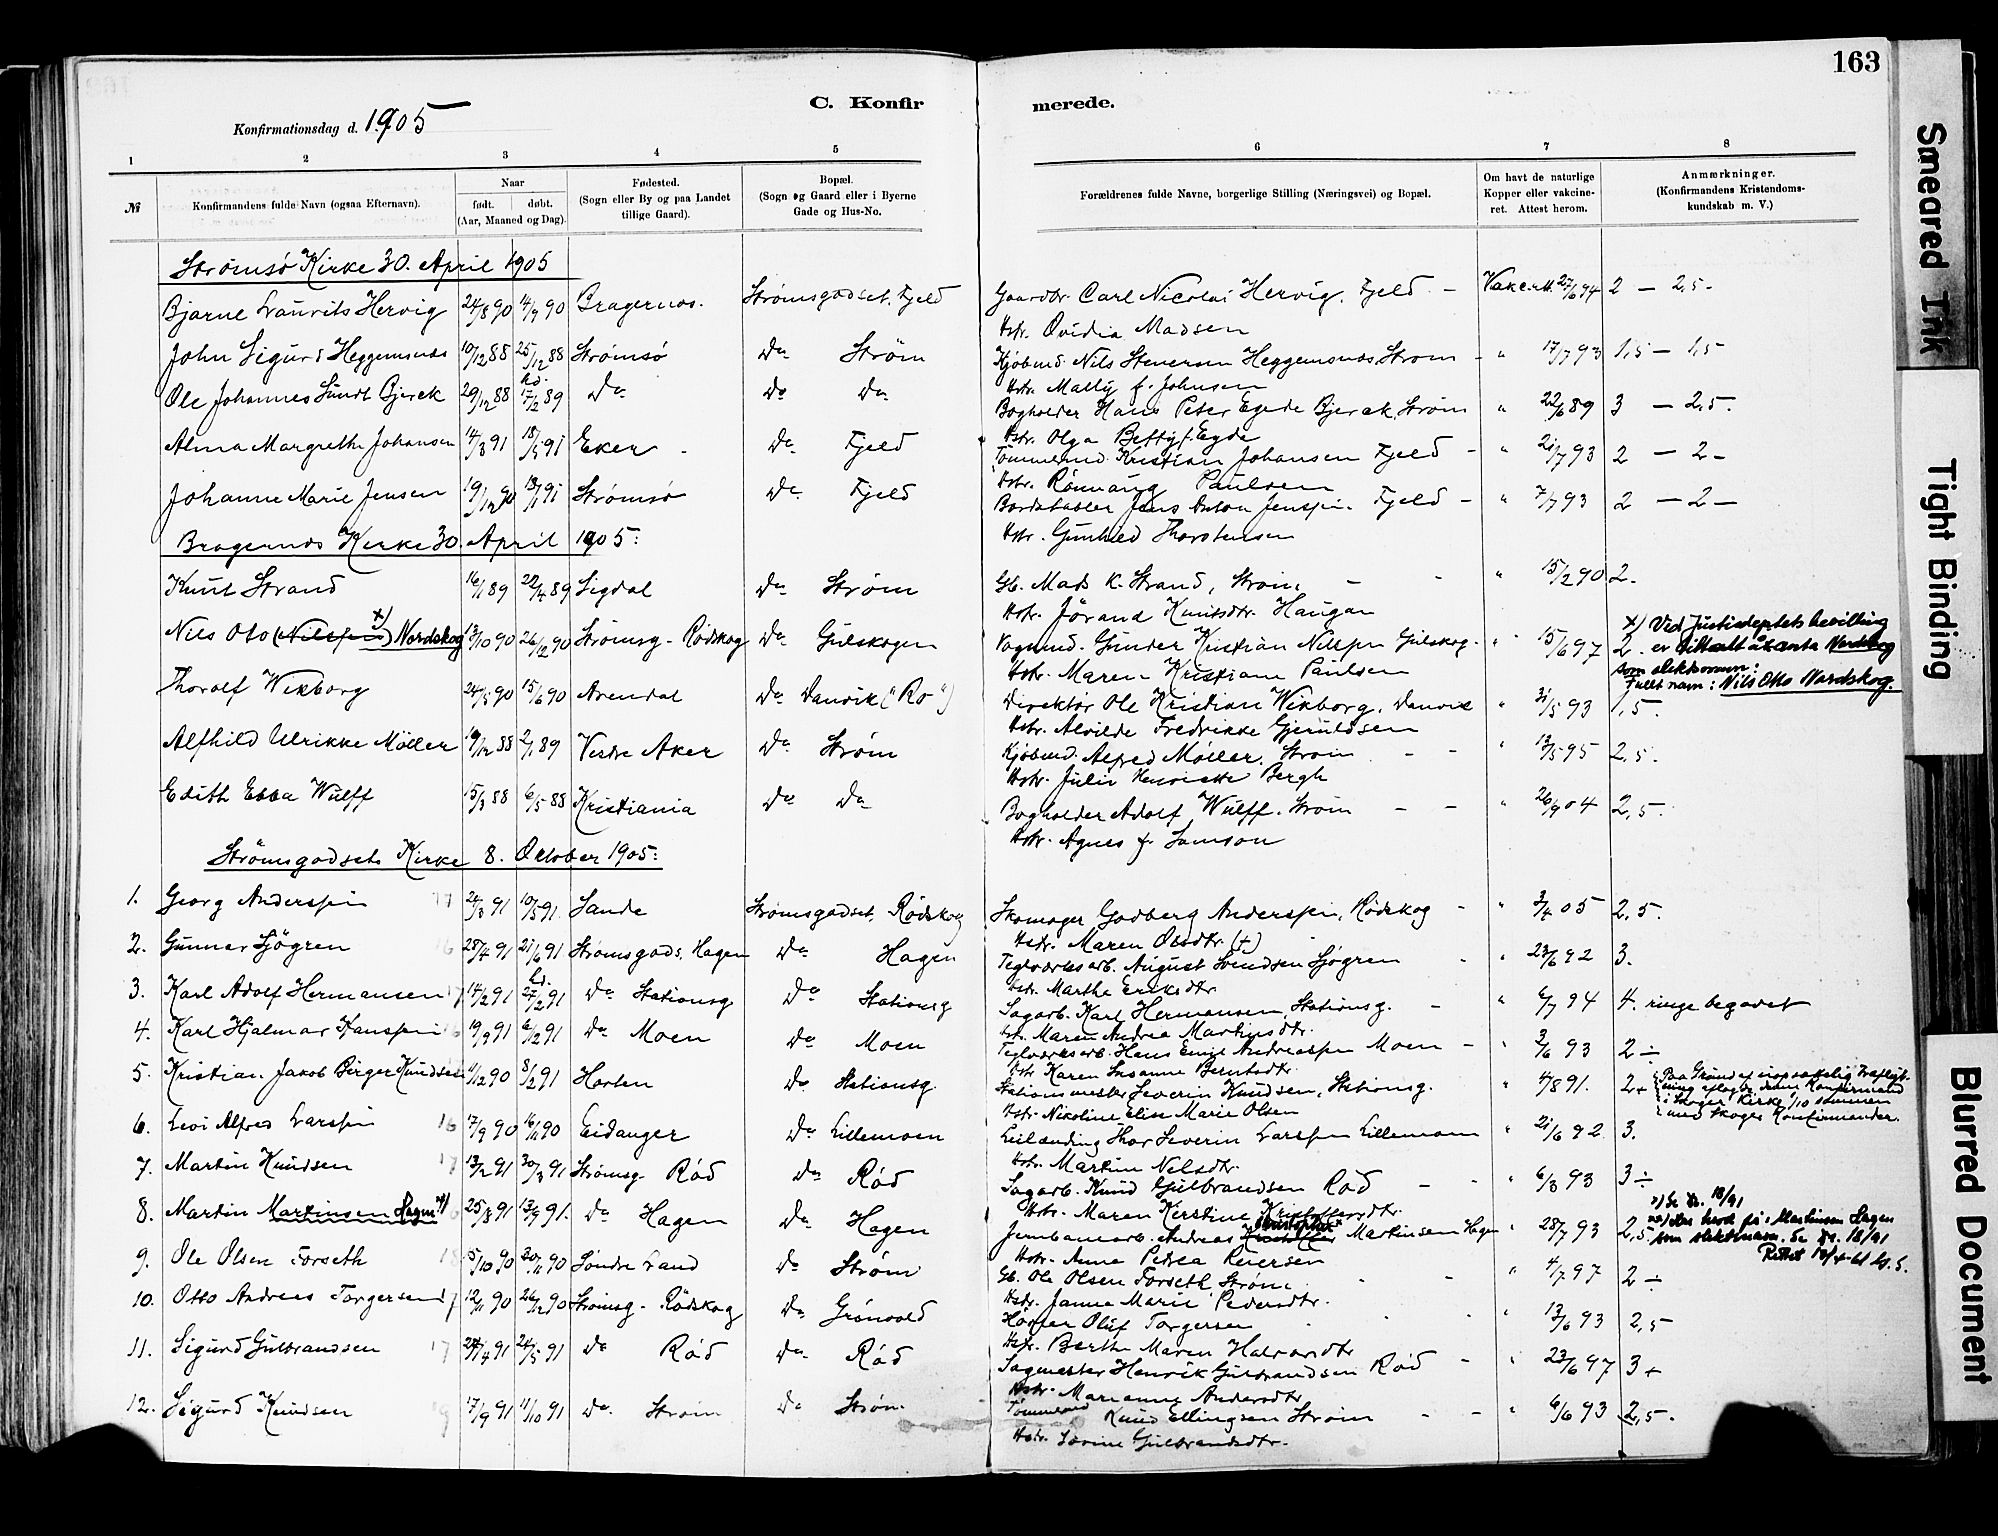 163
C. Konfir merede.
Konfirmationsdag d. 1905
1 2 3 4 5 6 7 8
№ Konfirmandens fulde Navn (ogsaa Efternavn). Naar født. døbt. (Aar, Maaned og Dag). Fødested. (Sogn eller By og paa Landet tillige Gaard). Bopæl. (Sogn og Gaard eller i Byerne Gade og Hus-No. Forældrenes fulde Navne, borgerlige Stilling (Næringsvei) og Bopæl. Om havt de naturlige Kopper eller vakcineret. Attest herom. Anmærkninger. (Konfirmandens Kristendomskundskab m. V.)
Strømsø Kirke 30. April 1905
Bjarne Laurits Hervig 24/8 90 14/9 90 Bragernes. Strømsgodset. Fjeld Gaardbr. Carl Nicolai Hervig. Fjeld - Vakc. att. 27/6 94 2 - 2,5 -
Hstr. Ovidia Madsen
John Sigurd Heggemsnes 10/12 88 25/12 88 Strømsø Do Strøm Kjøbmd. Nils Stenersen Heggemsnes, Strøm - " 17/7 93 1,5 - 1,5
Hstr. Mally f. Johnsen
Ole Johannes Sundt Bjerek 29/12 88 hd. 17/2 89 Do Do Do Bogholder Hans Peter Egede Bjerek, Strøm " 22/6 89 3 - 2,5.
Hstr. Olga Betty f. Egde
Alma Margrethe Johansen 14/3 91 18/5 91 Eker - Do Fjeld Tømmermd. Kristian Johansen Fjeld - " 21/7 93 2 - 2 -
Hstr. Rønnaug Paulsen
Johanne Marie Jensen 19/12 90 18/1 91 Strømsø Do Fjeld Bordstabler Jens Anton Jensen. Fjeld - " 7/7 93 2 - 2 -
Hstr. Gunhild Thorstensen
Bragernes Kirke 30. April 1905:
Knut Strand 16/1 89 22/4 89 Sigdal Do Strøm Gb. Mads K. Strand, Strøm, - - " 15/2 90 2.
Hstr. Jørand Knutsdtr. Haugan
Nils Oto (Nilssen) x) Nordskog 13/10 90 26/12 90 Strømsg. Rødskog Do Gulskogen Vognmd. Gunder Kristian Nilssen Gulskog. " 15/6 97 2.
x) Ved Justisdeptets bevilling
er tillatt å anta Nordskog
som slektsnavn:
Fullt navn: Nils Otto Nordskog.
Hstr. Maren Kristiane Paulsen
Thorolf Wikborg 24/5 90 15/6 90 Arendal Do Danvik ("Ro") Direktør Ole Kristian Wikborg, Danvik " 31/5 93 1,5.
Hstr. Alvilde Fredrikke Gjeruldsen
Alfhild Ulrikke Møller 19/12 88 2/1 89 Vestre Aker Do Strøm Kjøbmd. Alfred Møller, Strøm - - " 13/5 95 2,5.
Hstr. Julie Henriette Bergh
Edith Ebba Wulff 15/3 88 6/5 88 Kristiania Do Do Bogholder Adolf Wulff. Strøm - - " 26/9 04 2,5.
Hstr. Agnes f. Samson
Strømsgodsets Kirke 8. October 1905:
1. Georg Anderssen 17 24/3 91 10/5 91 Sande Strømsgodset. Rødskog Skomager Godberg Anderssen, Rødskog - " 3/4 05 2,5.
Hstr. Maren Olsdtr. (+)
2. Gunnar Sjögren 16 28/4 91 21/6 91 Strømsgods. Hagen Do Hagen Teglværksarb. August Svendsen Sjögren - " 23/6 92 3.
Hstr. Marthe Eriksdtr.
3. Karl Adolf Hermansen 17 14/2 91 hd. 27/2 91 Do Stationsg Do Stationsg Sagarb. Karl Hermansen, Stationsg. - " 6/7 94 4. ringe begavet
Hstr. Maren Andrea Martinsdtr.
4. Karl Hjalmar Hanssen 16 19/9 91 6/12 91 Do Moen Do Moen Teglværksarb. Hans Emil Andreassen Moen - " 2/6 93 2 ÷
Hstr. Karen Susanne Berntsdtr.
5. Kristian Jakob Birger Knudsen 11/12 90 8/2 91 Horten Do Stationsg. Stationsmester Severin Knudsen, Stationsg. " 4/8 91. 2+
Paa Grund af
denne Konfirmand
i Skoger Kirke 1/10 sammen
med Skoger Konfirmander.
Hstr. Nikoline Elise Marie Olsen
6. Levi Alfred Larssen 16 17/9 90 16/11 90 Eidanger Do Lillemoen Leilænding Thor Severin Larssen Lillemoen " 21/6 92 3.
Hstr. Martine Nilsdtr.
7. Martin Knudsen 17 13/2 91 30/3 91 Strømsg. Rød Do Rød Sagarb. Knud Gulbrandsen Rød - - " 6/3 93 3 ÷
Hstr. Maren Kirstine Kristoffersdtr.
8. Martin Martinsen Hagen 25/8 91 13/9 91. Do Hagen Do Hagen Jernbanearb. Andreas Kristoffer Martinsen Hagen " 28/7 93 2,5
x) Se fr. 18/91
xx) Har hevd på: Martinsen Hagen
som slektsnavn. Se fr. 18/91
Hstr. Anne Petrea Reiersen
9. Ole Olsen Forseth 18 15/10 90 30/11 90 Søndre Land Do Strøm Gb. Ole Olsen Forseth, Strøm. " 4/7 97 2 ÷
Hstr. Janna Marie Pedersdtr.
10. Otto Andreas Torgersen 17 12/11 90 26/12 90 Strømsg - Rødskog Do Grønvold Høker Oluf Torgersen " 13/6 93 2,5
Hstr. Berthe Maren Halvorsdtr
11. Sigurd Gulbrandsen 17 24/4 91 24/5 91 do Rød Do Rød Sagmester Henrik Gulbrandsen Rød - " 23/6 97 3+
Hstr. Marianne Andersdtr.
12. Sigurd Knudsen 17/9 91 11/10 91 Do. Strøm Do Strøm Tømmermd Knud Ellingsen Strøm - - " 6/6 93 2,5.
Hstr. Lovine Gulbrandsdtr.
Smeared Ink
Tight Binding
Blurred Document